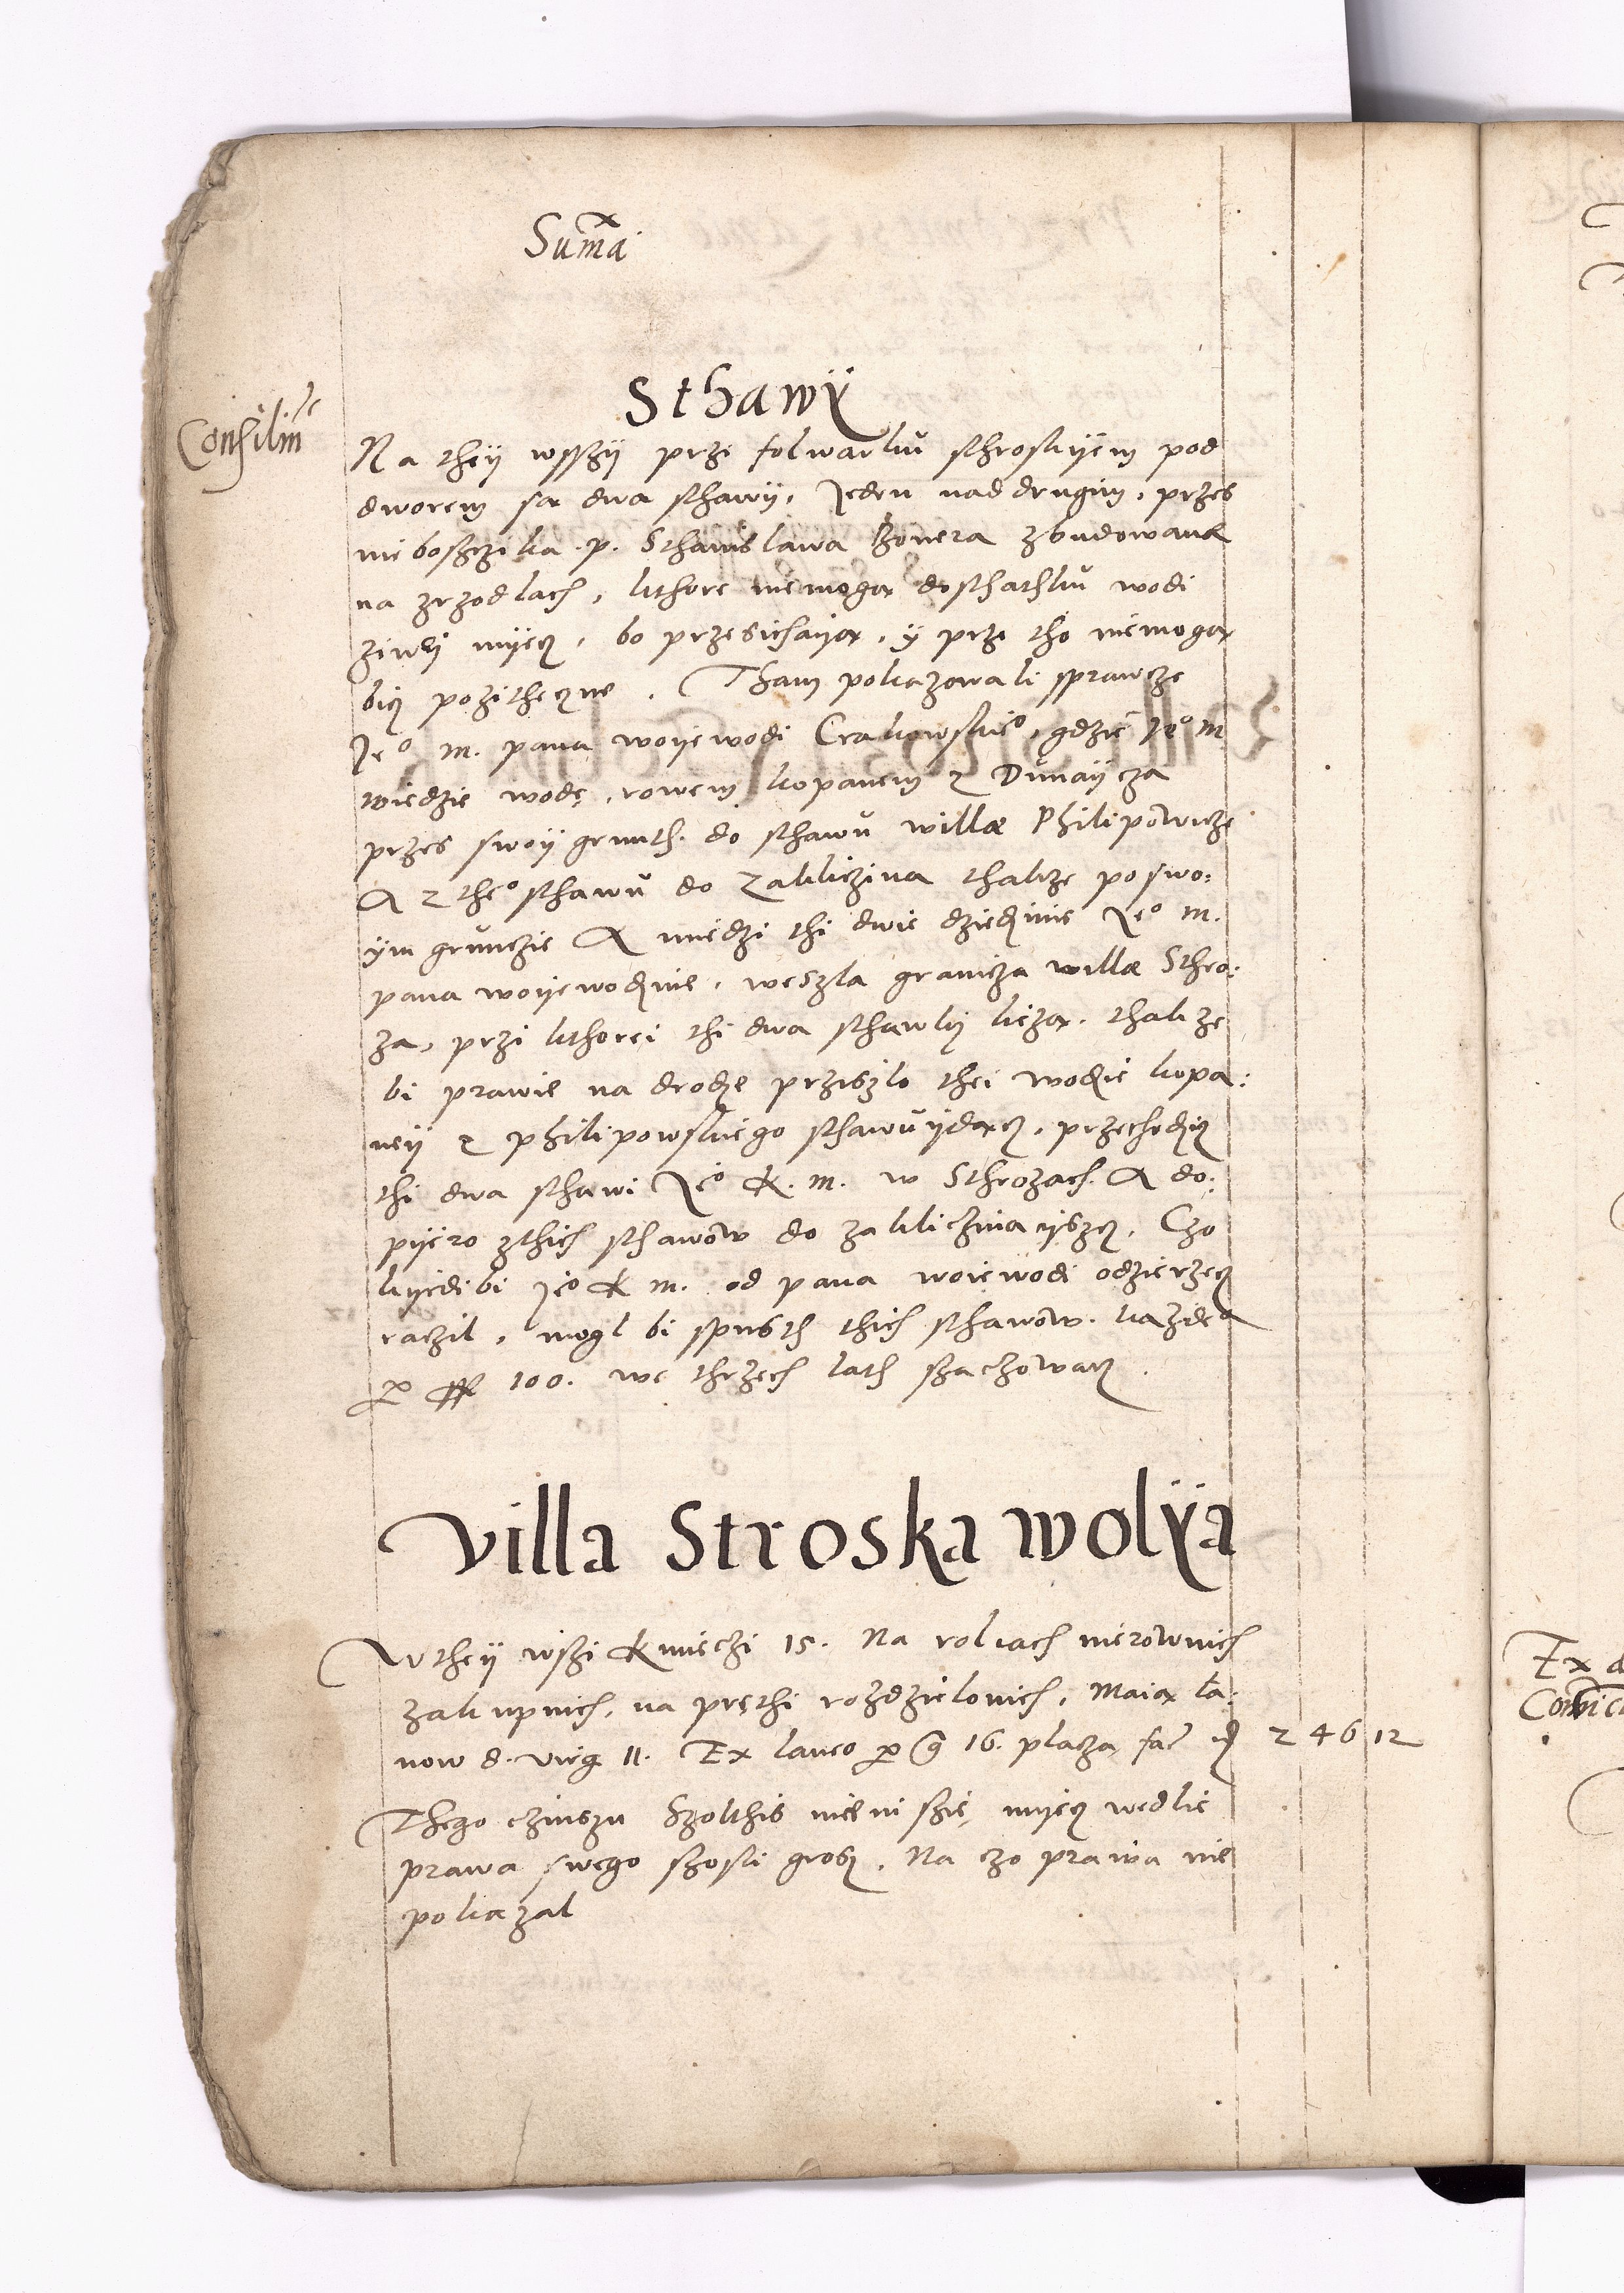 Suma
Sthawÿ
Consilium
Na theÿ wsszÿ przi folwarku sthroskÿem pod
dworem sa dwa sthawÿ, Jeden nad drugim, przes
nieboszczika p. Sthanislawa Bonera zbudowana
na zrzodlach, kthore niemogą dosthathku wodi
ziwÿ mÿecz, bo przesichaÿą, ÿ prze tho niemogą
bicz pozitheczne. Tham pokazowali sprawcze
Je° m. pana woÿewodi Crakowskie°, gdzie Je° m
wiedzie wodę, rowem kopanem z Dunaÿcza
przes swoÿ grunth do sthawu willæ Philipowicze
A z the° sthawu do Zakliczina thakze po swo:
ÿm gruncze A miedzi thi dwie dziedzinie Je° m.
pana woÿewodzine, weszla granicza willæ Sthro:
za, przi kthorei thi dwa sthawkÿ liezą. thak ze
bi prawie na drodze przeszlo thei wodzie kopa:
neÿ z philipowskiego sthawu ÿdącz, przechodzicz
thi dwa sthawi Je° K. m. w Sthrozach. A do:
pÿero zthich sthawow do zakliczina ÿszcz. Czo
kÿedi bi Je° K m. od pana woiewodi odzierzecz
raczil, mogl bi spusth thich sthawow. kazdego
per ff 100. we thrzech lath szaczowacz.
Villa Stroska wolÿa
W theÿ wszi Kmieczi 15. Na roliach nierownich
zakupnich, na pręthi rozdzielonich, Maią la:
now 8. virg 11. Ex laneo per g 16. placzą fac 2 46 12
Thego czinszu Szolthis mieni szię mÿecz wedlie
prawa swego szosti grosz. Na czo prawa nie
pokazal